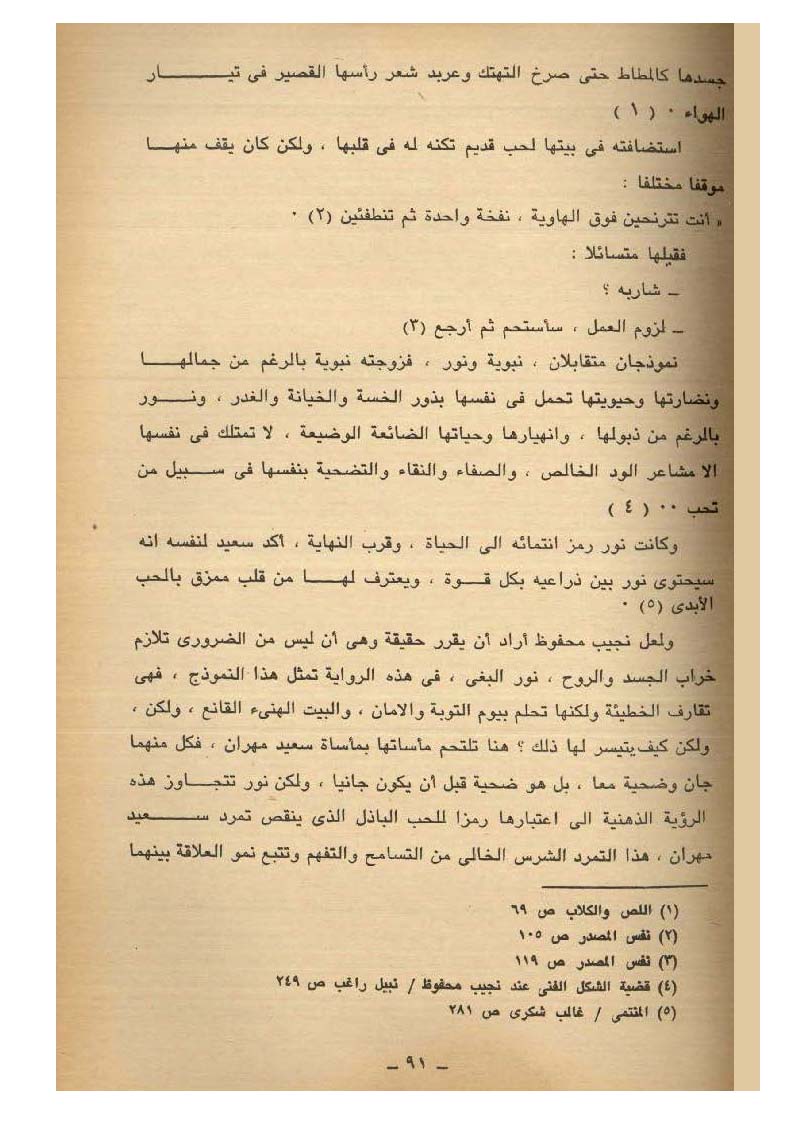 جسدها كالمطاط حتى صرخ التهتك وعربد شعر رأسها القصير فى تيـــــار
الهواء ٠ ( ١ )
استضافته فى بيتها لحب قديم تكنه له فى قلبها ، ولكن كان يقف منهـــا
موقفا مختلفا :
« أنت تترنحين فوق الهاوية ، نفخة واحدة ثم تنطفئين (٢) ٠
فقبلها متسائلا :
ــ شاربه ؟
ــ لزوم العمل ، سأستحم ثم أرجع (٣)
نموذجان متقابلان ، نبوية ونور ، فزوجته نبوية بالرغم من جمالهـــا
ونضارتها وحيويتها تحمل فى نفسها بذور الخسة والخيانة والغدر ، ونـــور
بالرغم من ذبولها ، وانهيارها وحياتها الضائعة الوضيعة ، لا تمتلك فى نفسها
الا مشاعر الود الخالص ، والصفاء والنقاء والتضحية بنفسها فى ســـبيل من
تحب ٠٠ ( ٤ )
وكانت نور رمز انتمائه الى الحياة ، وقرب النهاية ، أكد سعيد لنفسه انه
سيحتوى نور بين ذراعيه بكل قـــوة ، ويعترف لهـــا من قلب ممزق بالحب
الأبدى (٥) ٠
ولعل نجيب محفوظ أراد أن يقرر حقيقة وهى أن ليس من الضرورى تلازم
خراب الجسد والروح ، نور البغى ، فى هذه الرواية تمثل هذا النموذج ، فهى
تقارف الخطيئة ولكنها تحلم بيوم التوبة والامان ، والبيت الهنىء القانع ، ولكن ،
ولكن كيف يتيسر لها ذلك ؟ هنا تلتحم مأساتها بمأساة سعيد مهران ، فكل منهما
جان وضحية معا ، بل هو ضحية قبل أن يكون جانيا ، ولكن نور تتجـــاوز هذه
الرؤية الذهنية الى اعتبارها رمزا للحب الباذل الذى ينقص تمرد ســـعيد
مهران ، هذا التمرد الشرس الخالى من التسامح والتفهم وتتبع نمو العلاقة بينهما
(١) اللص والكلاب ص ٦٩
(٢) نفس المصدر ص ١٠٥
(٣) نفس المصدر ص ١١٩
(٤) قضية الشكل الفنى عند نجيب محفوظ / نبيل راغب ص ٢٤٩
(٥) المنتمى / غالب شكرى ص ٢٨١
ــ ٩١ ــ